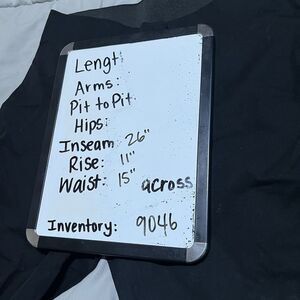 Lengt
Arms:
Pit to Pit
Hips:
Inseam 26"
Rise: 11"
Waist: 15" across
Inventory: 9046